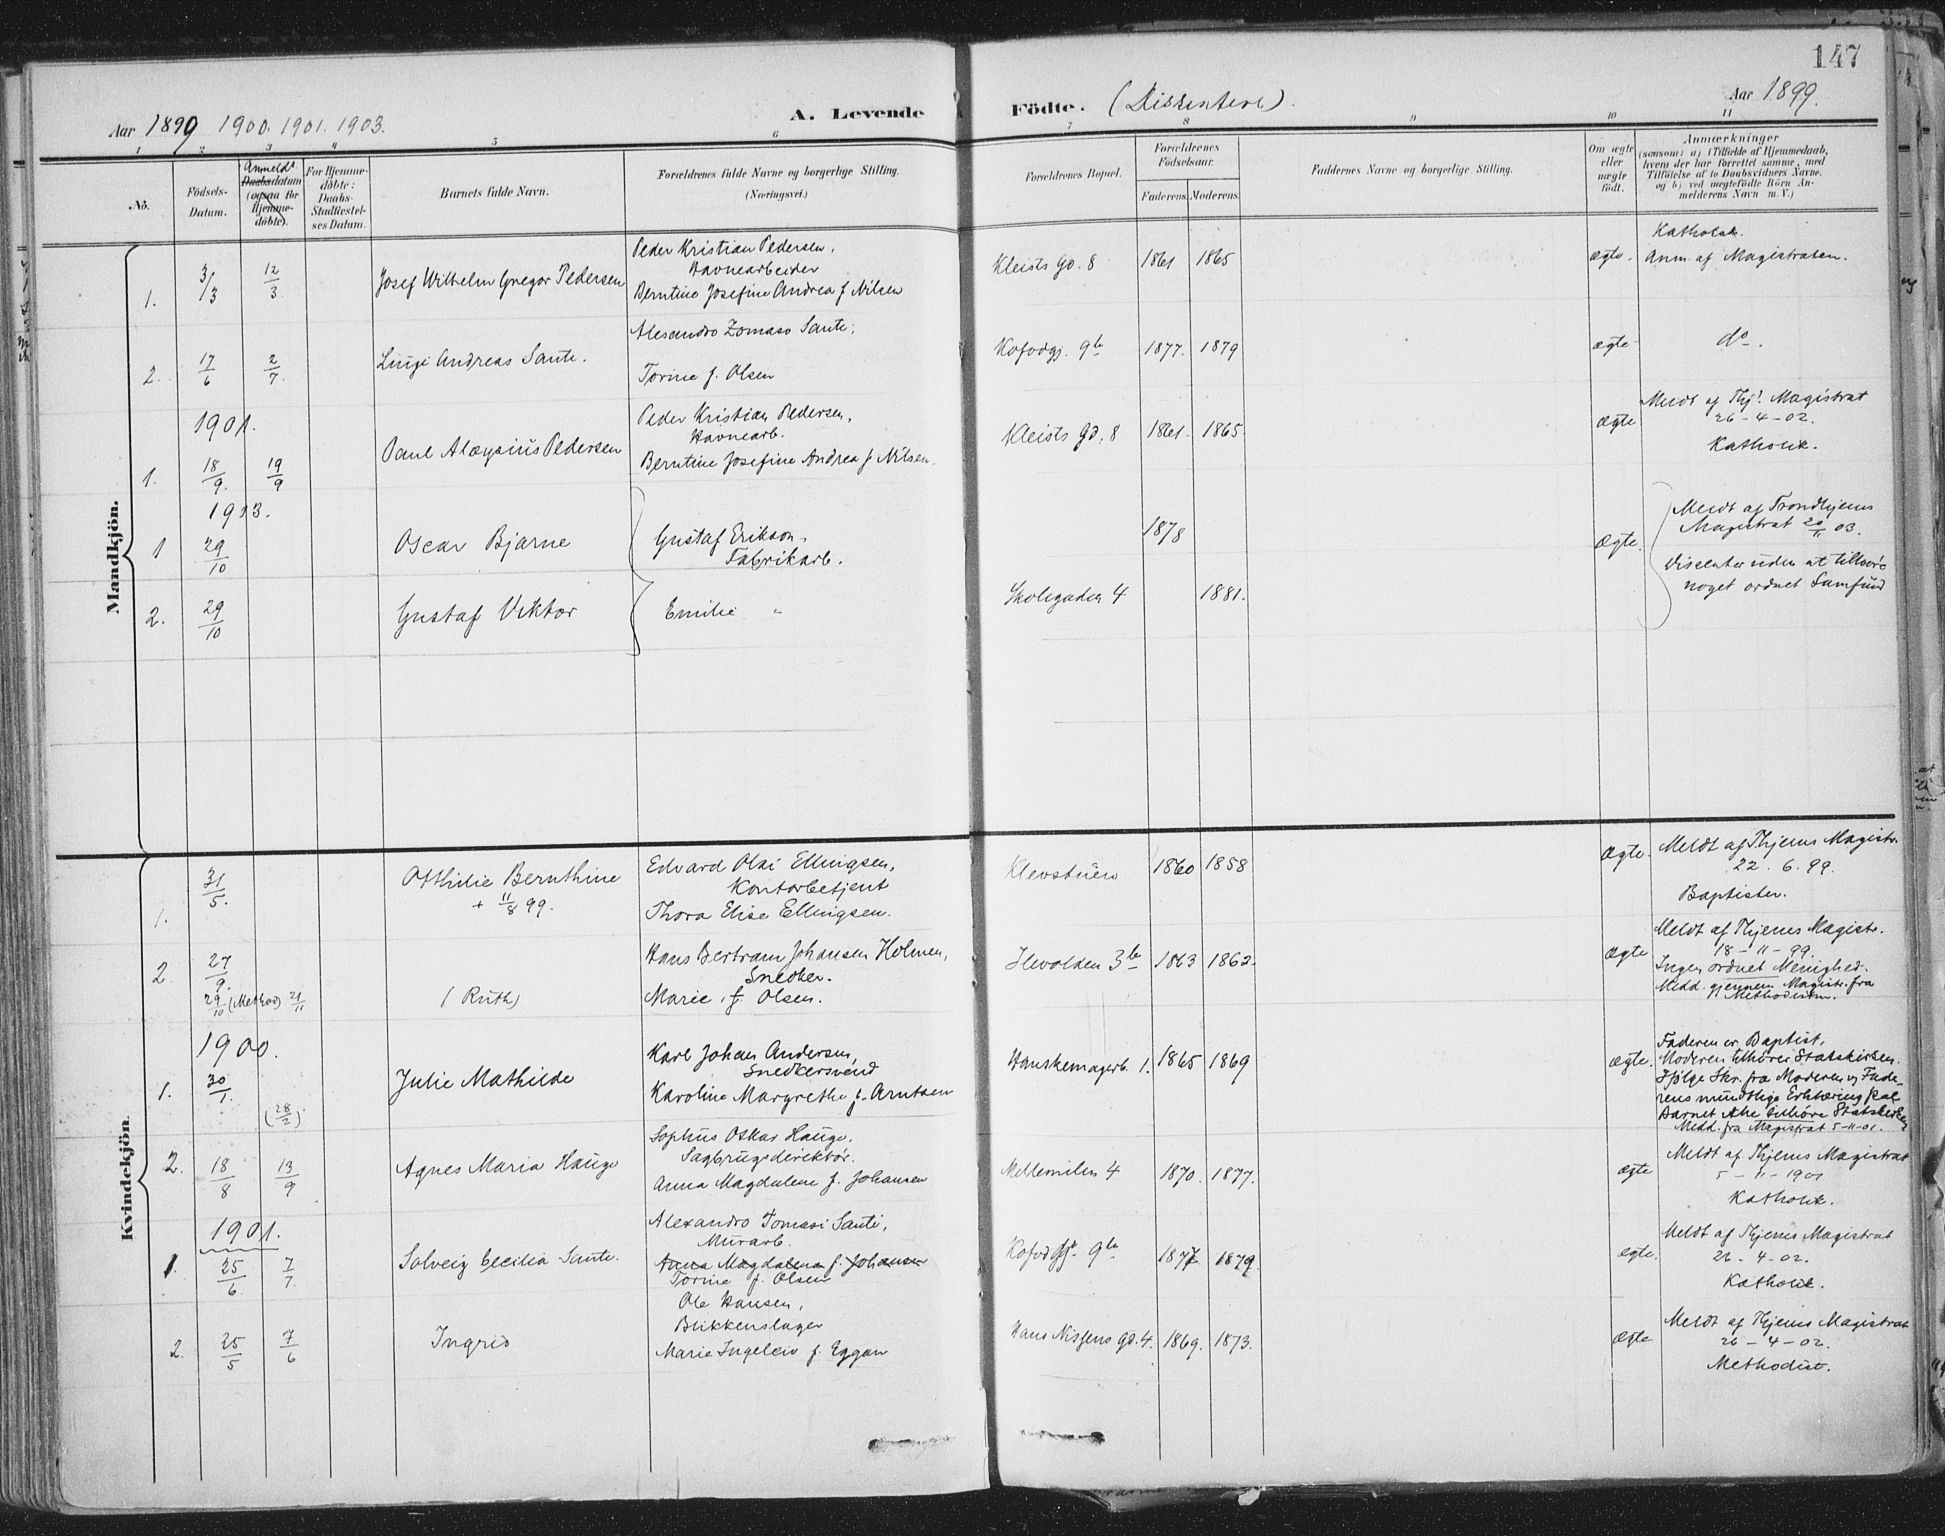 147
Aar 1899 1900. 1901. 1903.
A. Levende Födte. (Dissentere).
Aar 1899.
1 2 3 4 5 6 7 8 9 10 11
No.
Födsels-Datum.
Anmeldt
Daabsdatum (ogsaa för Hjemmedöbte).
For Hjemmedöbte: Daabs-Stadfæstelses Datum.
Barnets fulde Navn.
Forældrenes fulde Navne og borgerlige Stilling.
(Næringsvei.)
Forældrenes Bopæl.
Forældrenes Födselsaar.
Faderens. Moderens.
Faddernes Navne og borgerlige Stilling.
Om ægte eller uægte födt.
Anmærkninger
(saasom: a) i Tilfælde af Hjemmedaab, hvem der har forrettet samme, med Tilföielse af to Daabsvidners Navne. og b) ved uægtefödte Börn Anmelderens Navn m. V.)
Mandkjön.
1. 3/13 12/3 Josef Wilhelm Gregor Pedersen
Peder Kristian Pedersen,
Havnearbeider
Berntine Josefine Andrea f Nilsen
Kleists Gd. 8 1861 1865 ægte.
Katholsk.
Anm. af Magistraten.
2. 17/6 2/7. Luigi Andreas Sante.
Alesandro Zomaso Sante,
Torine f. Olsen
Kofodgj. 9b 1877. 1879 ægte do.
1901.
1. 18/9. 19/9 Paul Aloysius Pedersen
Peder Kristian Pedersen,
Havnearb.
Berntine Josefine Andrea f Nilsen.
Kleists Gd. 8 1861. 1865. ægte
Meldt af Thj. Magistrat
26-4-02.
Katholik.
1903.
1 29/10 Oscar Bjarne
Gustaf Erikson,
Fabrikarb.
1878 ægte.
Meldt af Trondhjems
Magistrat 20/11 03.
Disenter uden at tilhøre
noget ordnet Samfund
2. 29/10 Gustaf Viktor
Emilie "
Skolegaden 4 1881.
Kvindekjön.
1. 31/5. Otthilie Bernthine
+ 11/8 99.
Edvard Olai Ellingsen,
Kontorbetjent
Thora Elise Ellingsen.
1860 1858 Ægte.
Meldt af Thjems Magistr.
22. 6. 99.
Baptister.
2. 27/9.
29/10 (Method) 21/11 (Ruth)
Hans Bertram Johansen Holmen,
Snedker.
Marie, f. Olsen.
Ilevolden 3b 1863 1862. ægte
Meldt af Thjems Magistr.
18-11-99.
Ingen ordnet Menighed.
Medd. gjennem Magistr. fra
Methodistm.
1900.
1. 30/1. (28/2) Julie Mathilde
Karl Johan Andersen,
Snedkersvend
Karoline Margrethe f. Arntsen
Hanskemagerb. 1. 1865 1869 ægte.
Faderen er Baptist,
Moderen tilhører Statskirken.
Ifølge Skr. fra Moderen og Fade-
rens mundtlige Erklæring skal
Barnet ikke tilhøre Statskirken
Medd. fra Magistrat 5-11-01.
2. 18/8 13/9 Agnes Maria Hauge
Sophus Oskar Hauge,
Sagbrugsdirektør.
Anna Magdalene f. Johansen
Mellemilen 4 1870. 1877. ægte
Meldt af Thjems Magistrat
5-11-1901
Katholik.
1901.
1. 25/6. 7/7. Solveig Cecilia Sante.
Alexandro Tomasi Santi,
Murarb.
Anna Magdalena f. Johansen
Torine f. Olsen
Kofodgj. 9b 1877 1879 ægte.
Meldt af Thjems Magistrat
26-4-02.
Katholik.
2. 25/5 7/6 Ingrid
Ole Hansen,
Blikkenslager
Marie Ingeleiv f. Eggan
Hans Nissens gd. 4. 1869. 1873. ægte
Meldt af Thjems Magistrat
26-4-02.
Methodist.